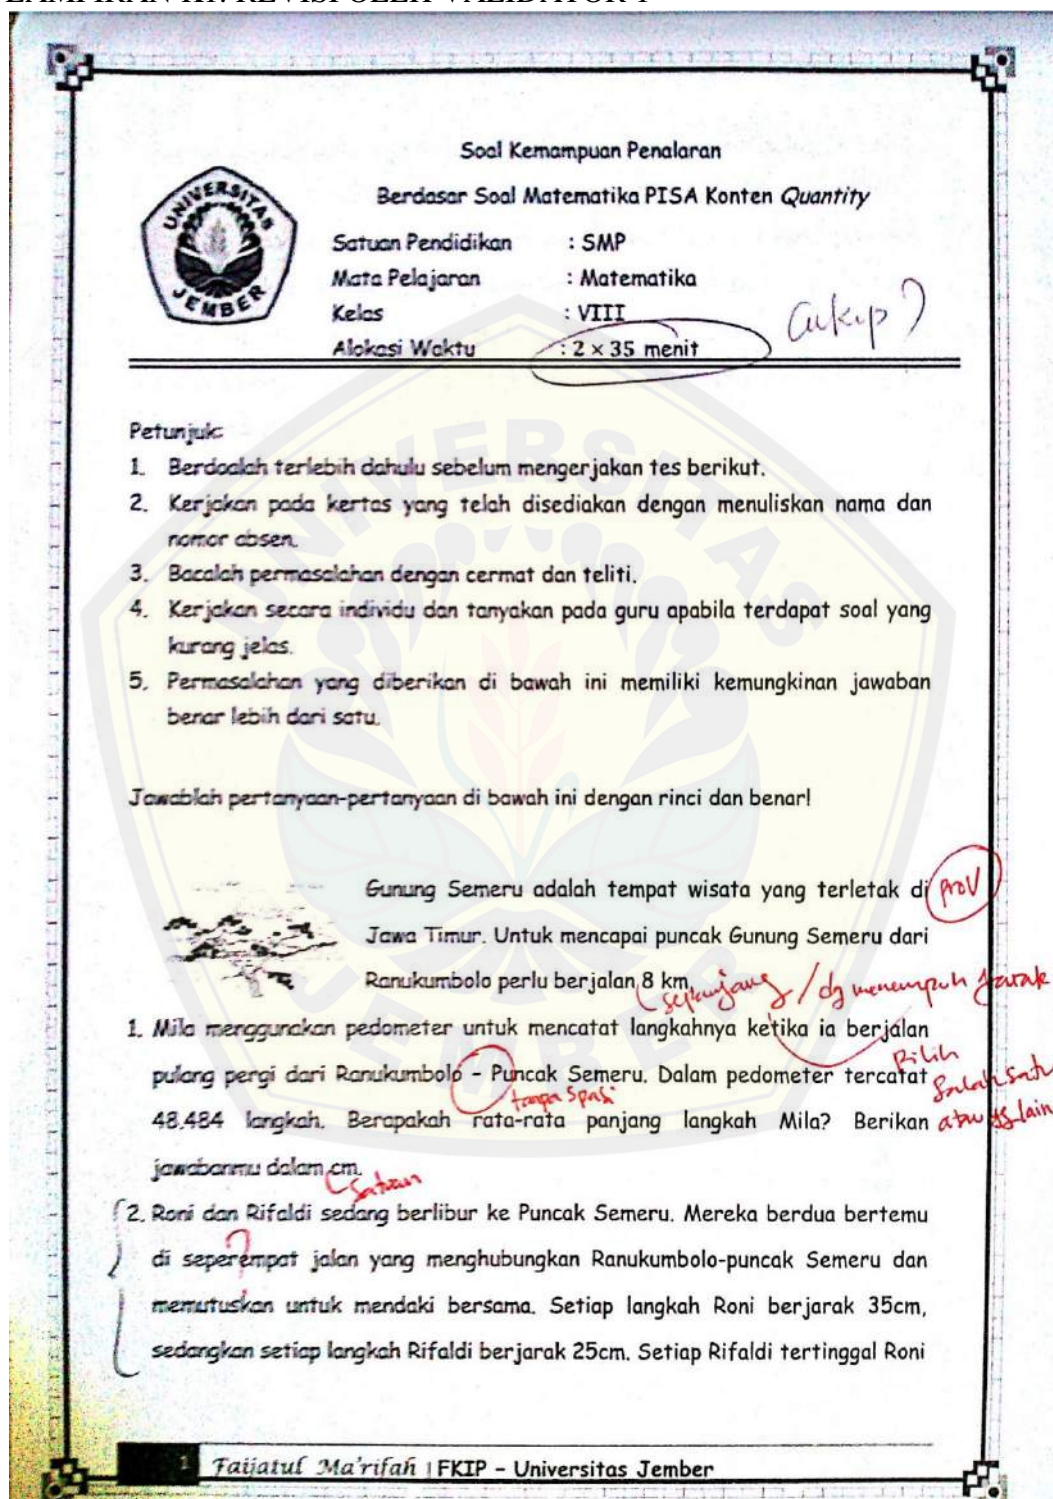 LAMPIRAN K1. REVISI OLEH VALIDATOR 1
Soal Kemampuan Penalaran
Berdasar Soal Matematika PISA Konten Quantity
UNIVERSITAS
JEMBER
Satuan Pendidikan : SMP
Mata Pelajaran : Matematika
Kelas : VIII
Alokasi Waktu : 2 × 35 menit
Cukup?
Petunjuk:
1. Berdoalah terlebih dahulu sebelum mengerjakan tes berikut.
2. Kerjakan pada kertas yang telah disediakan dengan menuliskan nama dan
nomor absen.
3. Bacalah permasalahan dengan cermat dan teliti.
4. Kerjakan secara individu dan tanyakan pada guru apabila terdapat soal yang
kurang jelas.
5. Permasalahan yang diberikan di bawah ini memiliki kemungkinan jawaban
benar lebih dari satu.
Jawablah pertanyaan-pertanyaan di bawah ini dengan rinci dan benar!
Gunung Semeru adalah tempat wisata yang terletak di prov
Jawa Timur. Untuk mencapai puncak Gunung Semeru dari
Ranukumbolo perlu berjalan 8 km.
sepanjang / dg menempuh jarak
1. Mila menggunakan pedometer untuk mencatat langkahnya ketika ia berjalan
Pilih
pulang pergi dari Ranukumbolo - Puncak Semeru. Dalam pedometer tercatat
salah satu
tanpa spasi
48.484 langkah. Berapakah rata-rata panjang langkah Mila? Berikan
atau yg lain
jawabanmu dalam cm.
satuan
2. Roni dan Rifaldi sedang berlibur ke Puncak Semeru. Mereka berdua bertemu
?
di seperempat jalan yang menghubungkan Ranukumbolo-puncak Semeru dan
memutuskan untuk mendaki bersama. Setiap langkah Roni berjarak 35cm,
sedangkan setiap langkah Rifaldi berjarak 25cm. Setiap Rifaldi tertinggal Roni
1 Faijatul Ma'rifah | FKIP - Universitas Jember